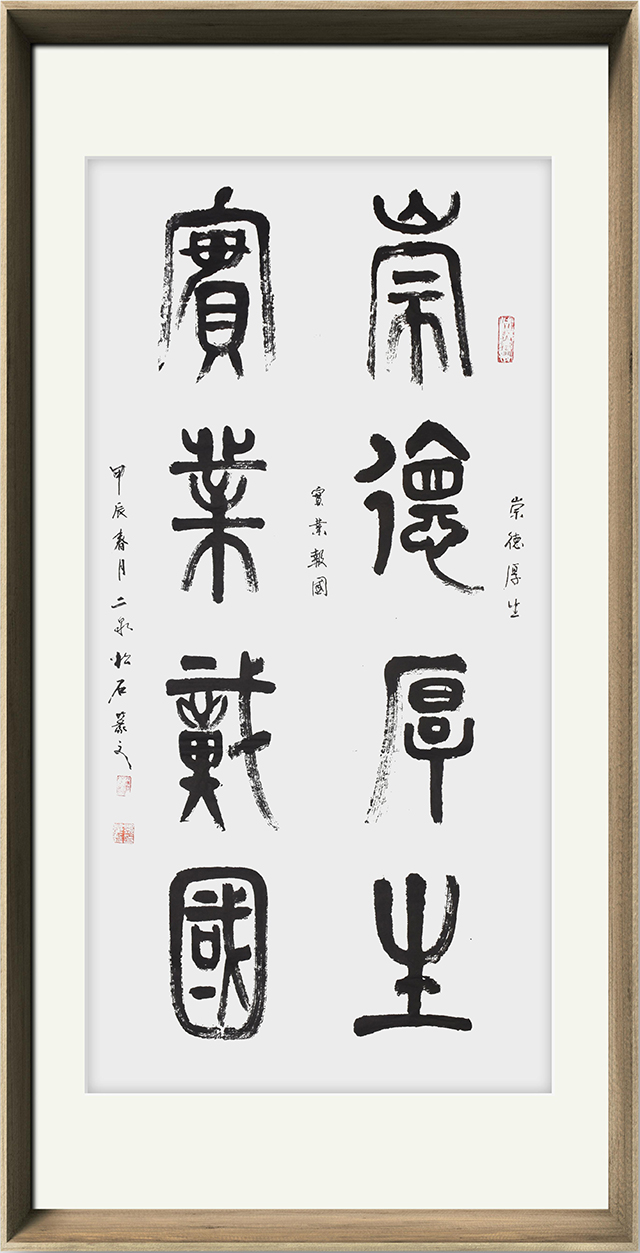 崇德厚生
崇德厚生
實業報國
實業戴國
甲辰春月二泉松石嚴文